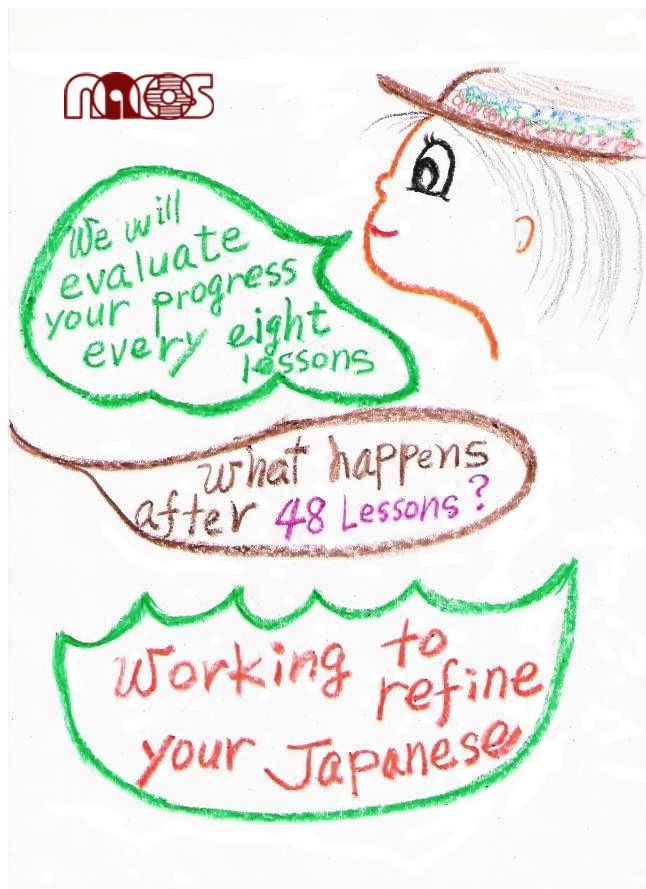 naos
We will
evaluate
your progress
every eight
lessons
what happens
after 48 Lessons?
Working to
refine
your Japanese